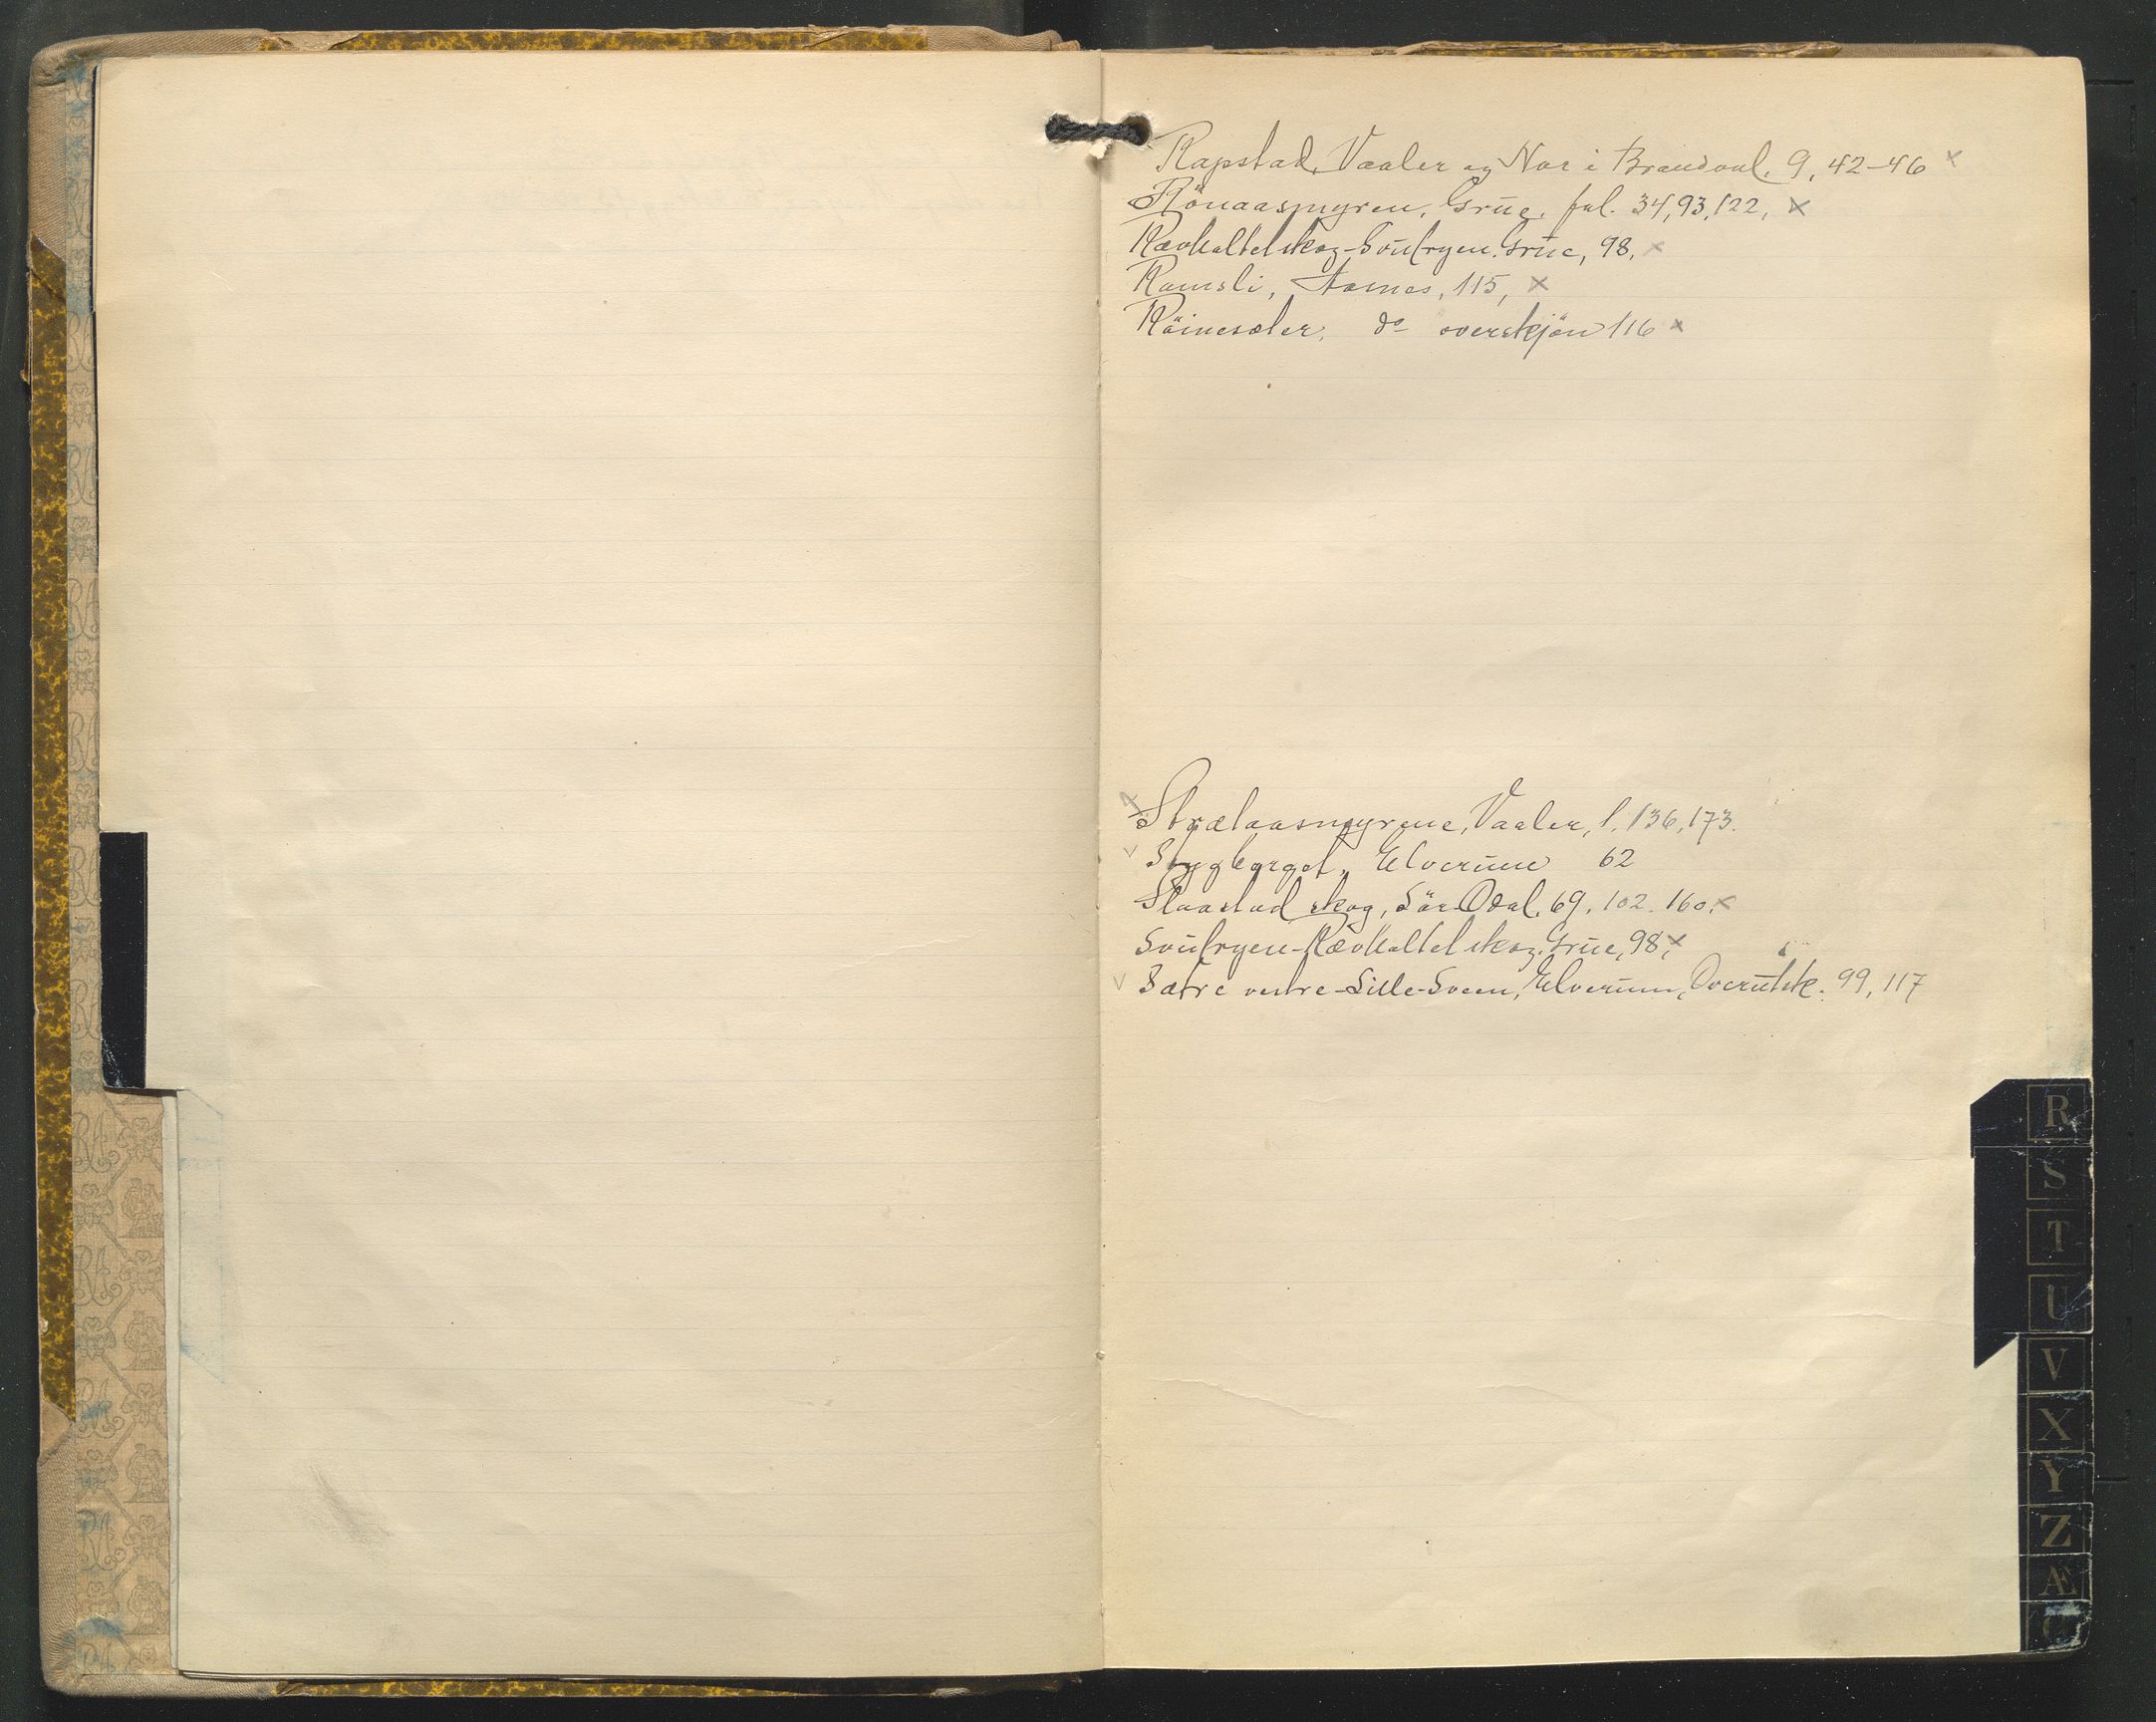 Rapstad, Vaaler og Nor i Brandval. 9, 42-46 x
Rönaasmyren, Grue, fol. 34, 93, 122, x
Rævholtet skog-Svulryen. Grue, 98. x
Ramsli, Aasnes, 115, x
Röinesæter, do overskjön 116 x
x Strætaasmyrene, Vaaler, 1, 136, 173.
v Stygberget, Elverum 62
Slaastad skog, Sör-Odal. 69. 102. 160. x
Svulryen-Rævholtet skog. Grue, 98, x
v Sætre vestre-Lille-Sveen, Elverum, Overutsk. 99, 117
R
S
T
U
V
X
Y
Z
Æ